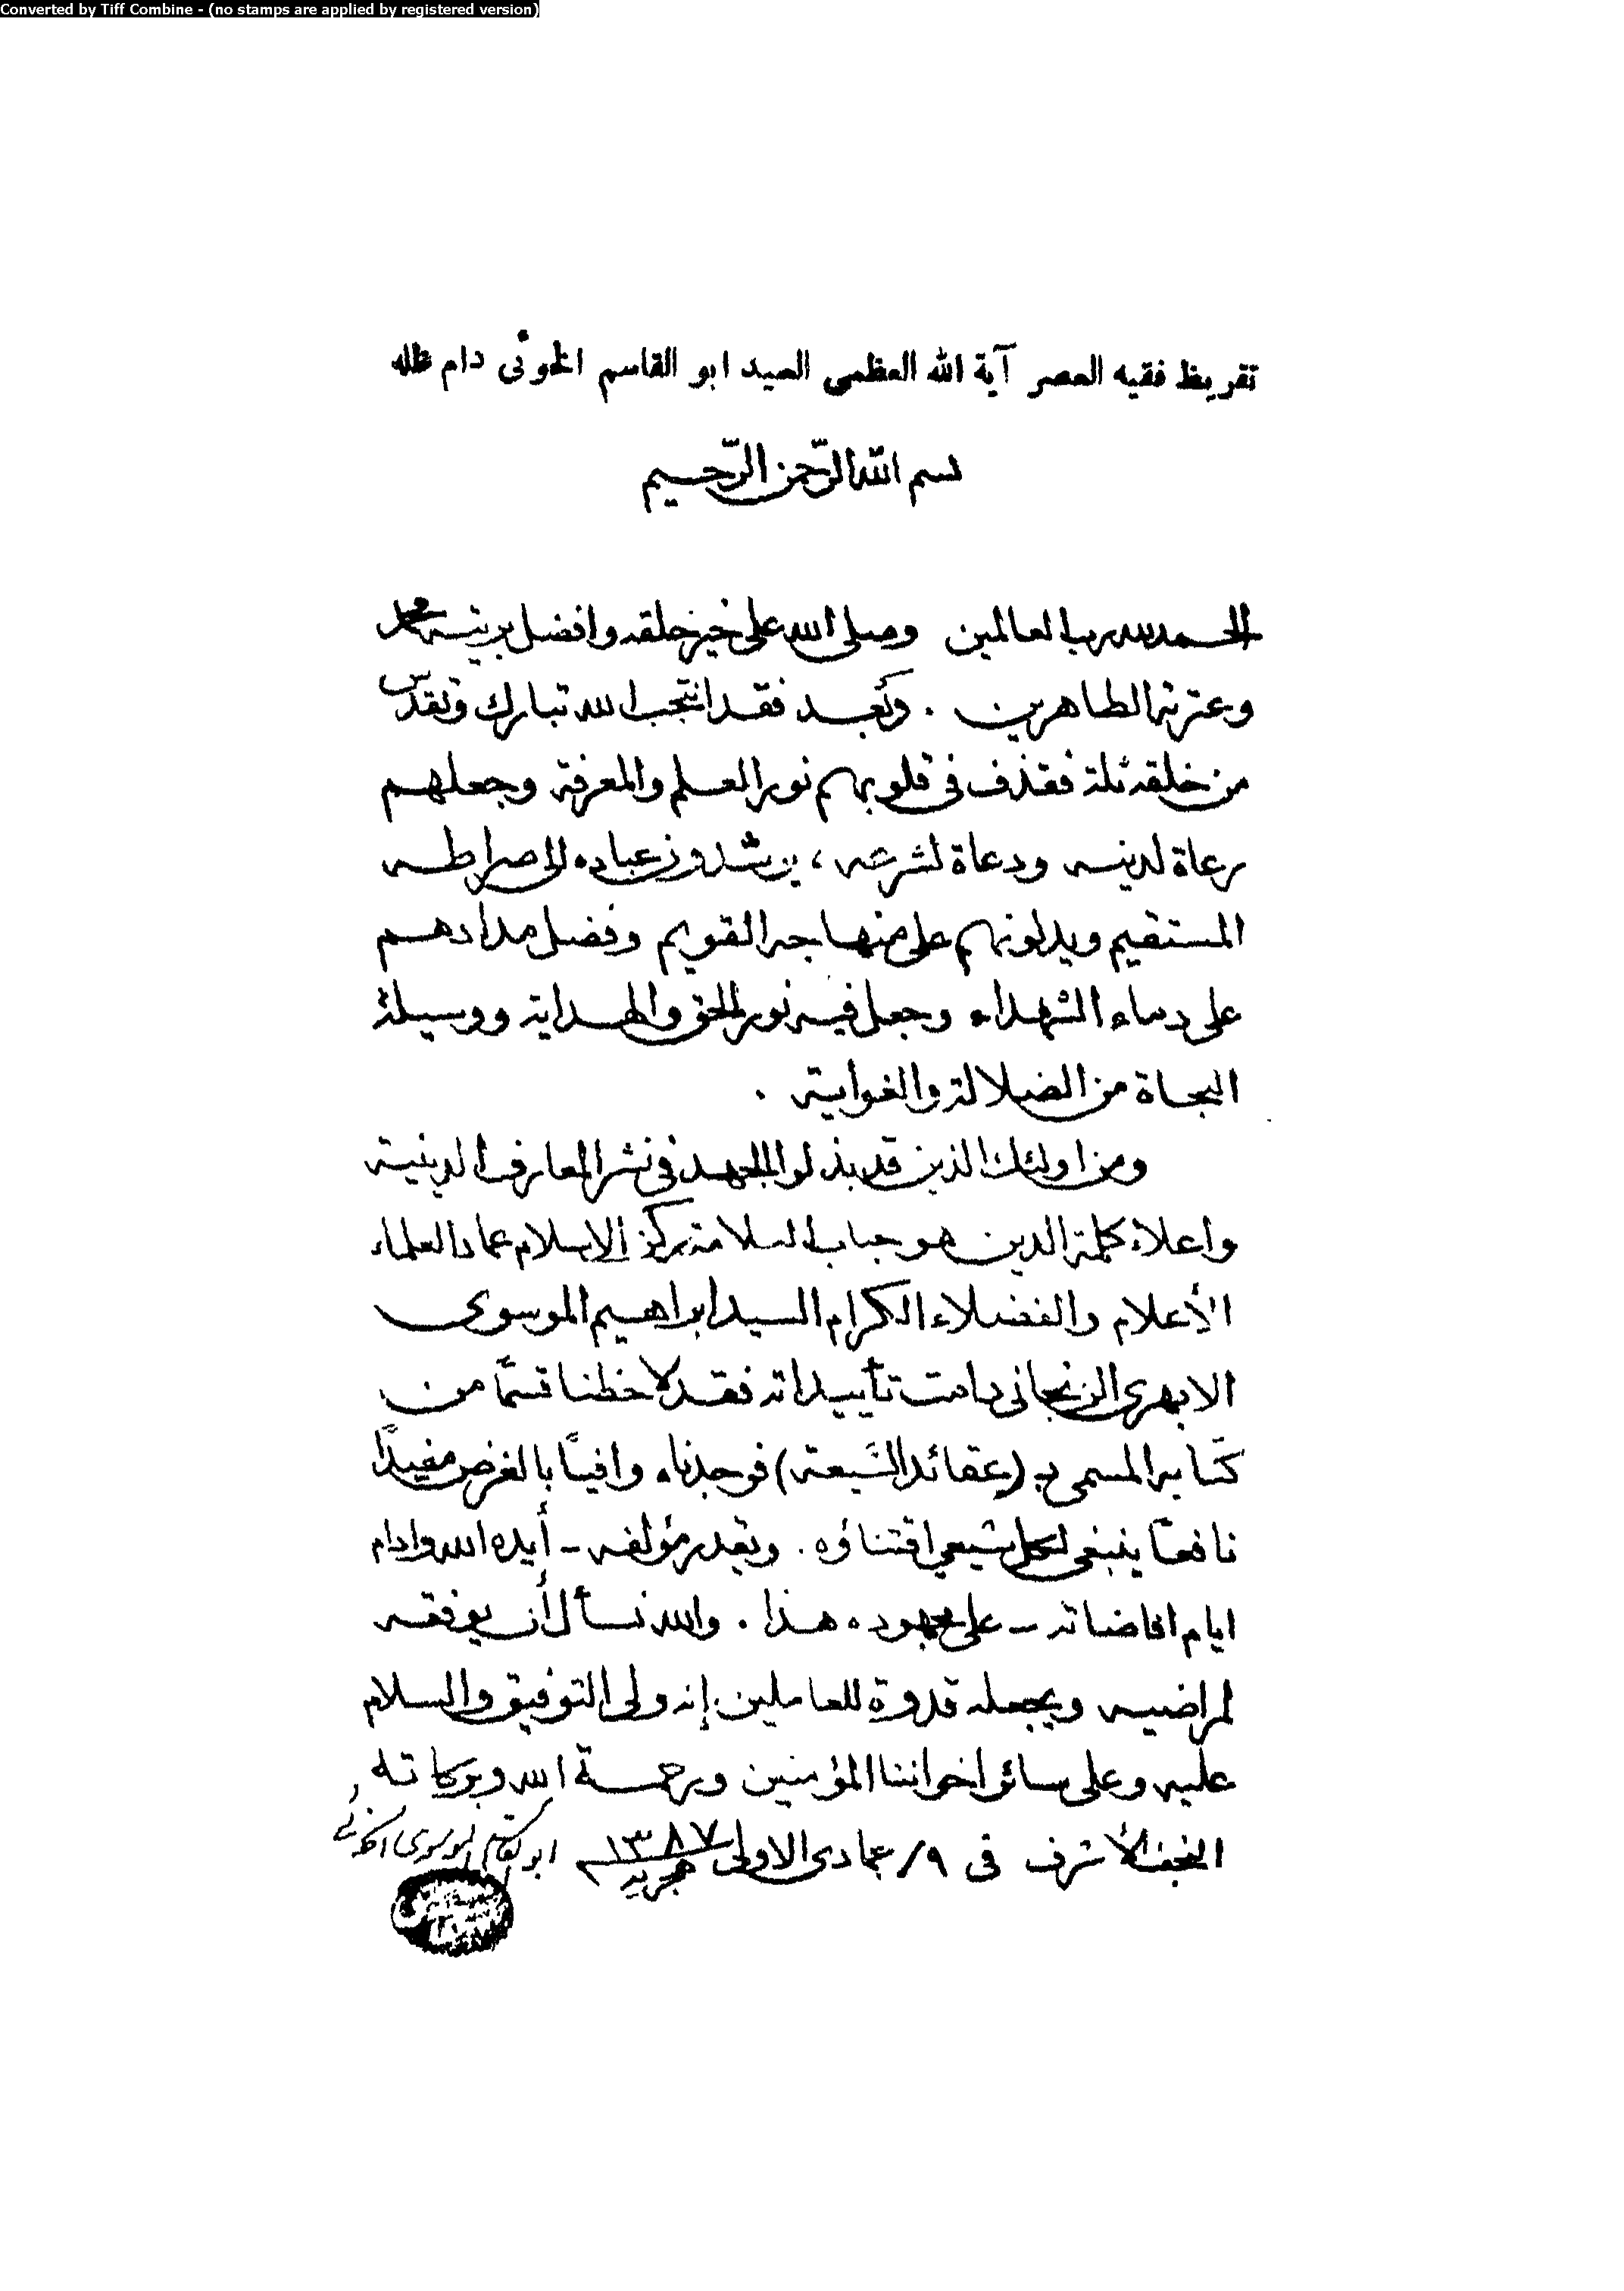 Converted by Tiff Combine - (no stamps are applied by registered version)
تقريظ فقيه العصر آية الله العظمى السيد ابو القاسم الخوئى دام ظله
بسم الله الرّحمن الرّحيم
الحمد لله رب العالمين وصلى الله على خير خلقه وافضل بريته محمد
وعترته الطاهرين . وبَعد فقد انتجب الله تبارك وتقدس
من خلقه ثلة فقذف في قلوبهم نور العلم والمعرفة وجعلهم
رعاة لدينه ودعاة لشرعه ، يرشدون عباده الى صراطه
المستقيم ويدلونهم على منهاجه القويم وفضل مدادهم
على دماء الشهداء وجعل فيه نور الحق والهداية ووسيلة
النجاة من الضلالة والغواية .
ومن اولئك الذين قد بذلوا الجهد في نشر المعارف الدينية
واعلاء كلمة الدين هو جناب العلامة ركن الاسلام عماد العلماء
الأعلام والفضلاء الكرام السيد ابراهيم الموسوى
الابهرى الزنجانى دامت تأييداته فقد لاحظنا قسمًا من
كتابه المسمى بـ (عقائد الشيعة) فوجدناه وافيًا بالغرض مفيدًا
نافعًا ينبغى لكل شيعي اقتناؤه . ويقدر مؤلفه - أيده الله وادام
ايام افاضاته - على مجهوده هذا . والله نسأل أن يوفقه
لمراضيه ويجعله قدوة للعاملين إنه ولى التوفيق والسلام
عليه وعلى سائر اخواننا المؤمنين ورحمة الله وبركاته
النجف الأشرف في ٩/ جمادى الاولى ١٣٨٧ هجرية ابو القاسم الموسوى الخوئي